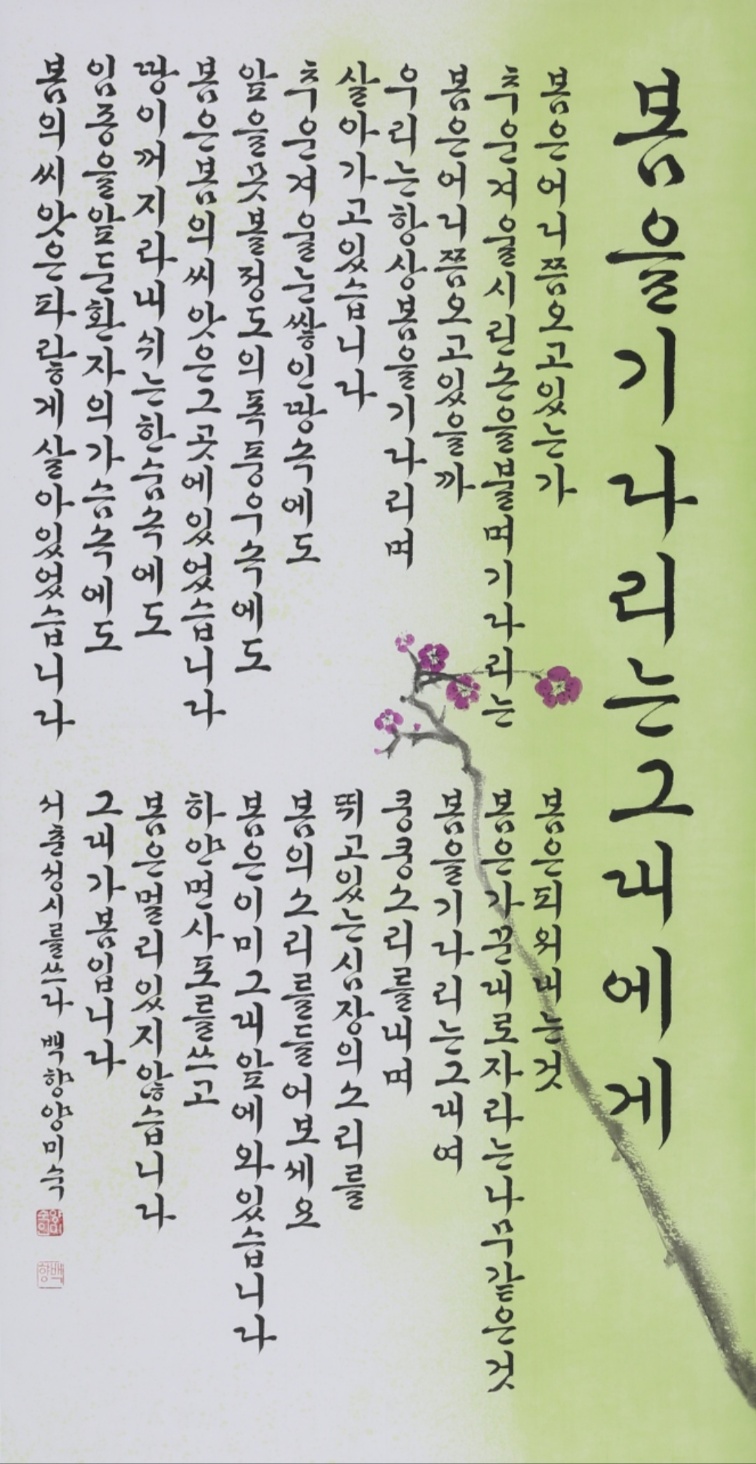 봄을기다리는그대에게
봄은어디쯤오고있는가
추운겨울시린손을불며기다리는
봄은어디쯤오고있을까
우리는항상봄을기다리며
살아가고있습니다
추운겨울눈쌓인땅속에도
앞을못볼정도의폭풍우속에도
봄은봄의씨앗은그곳에있었습니다
땅이꺼지라내쉬는한숨속에도
임종을앞둔환자의가슴속에도
봄의씨앗은파랗게살아있었습니다
봄은피워내는것
봄은가꾼대로자라는나무같은것
봄을기다리는그대여
쿵쿵소리를내며
뛰고있는심장의소리를
봄의소리를들어보세요
봄은이미그대앞에와있습니다
하얀면사포를쓰고
봄은멀리있지않습니다
그대가봄입니다
서출성시를쓰다 백향양미숙